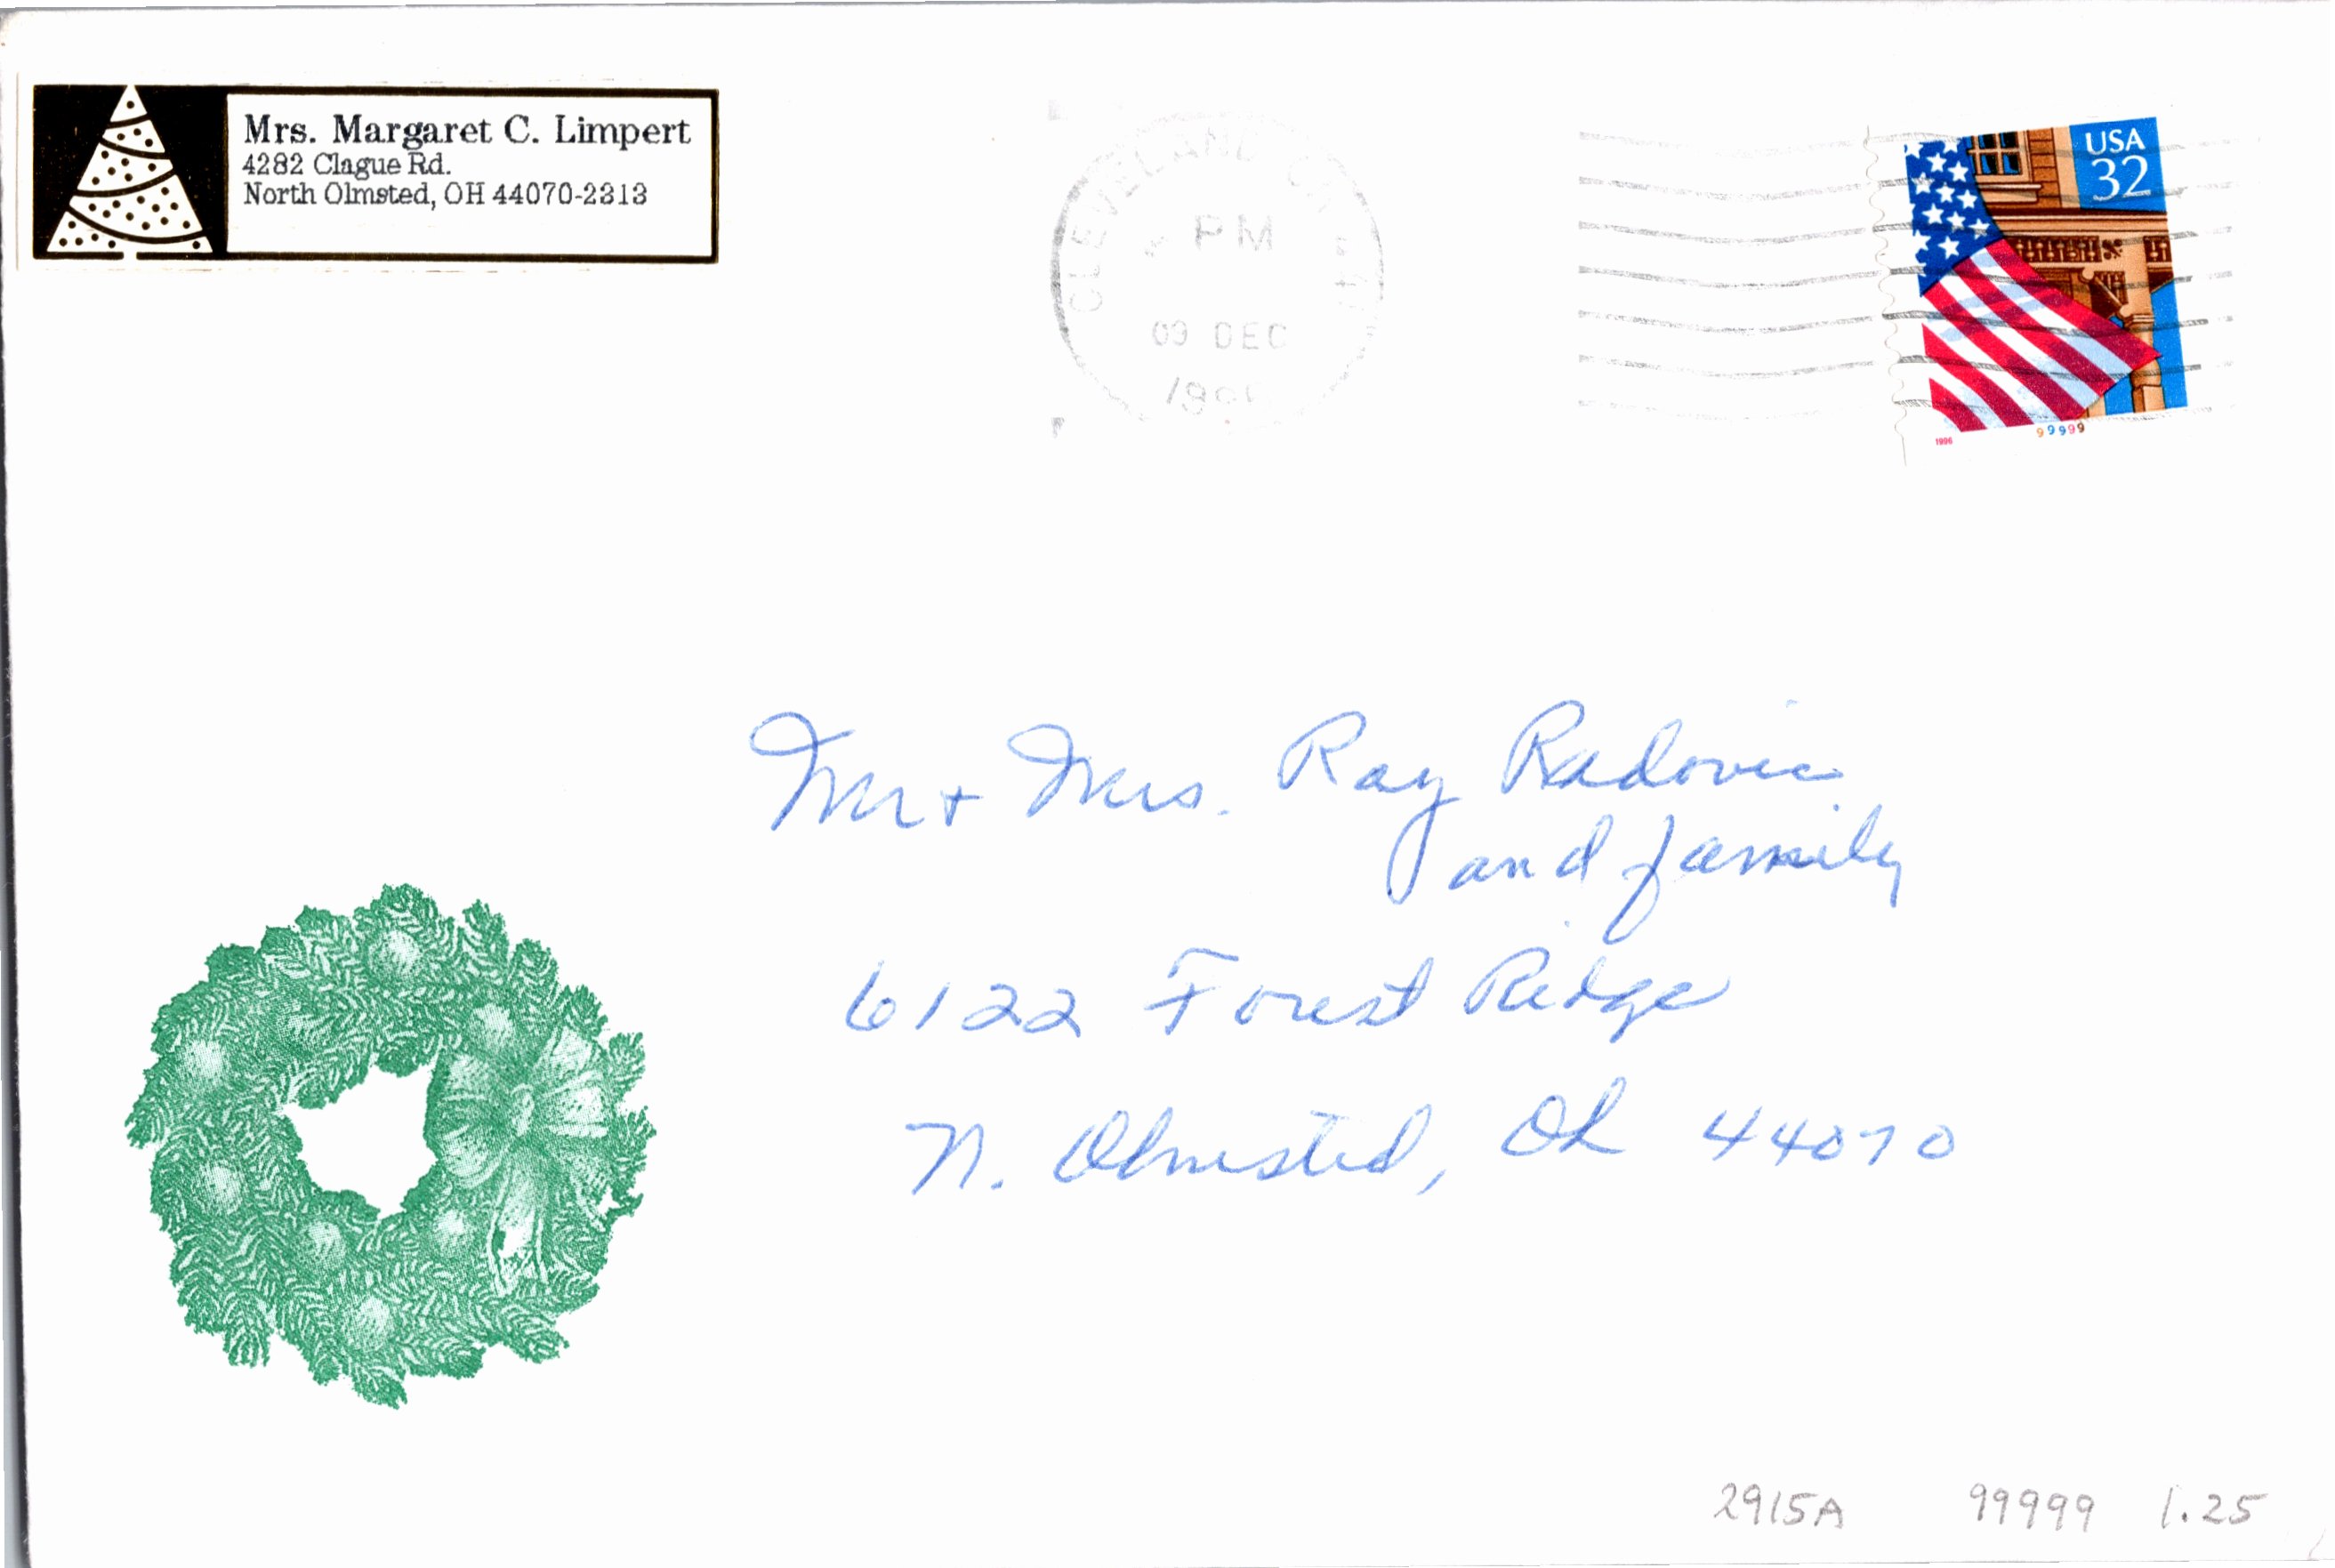 Mrs. Margaret C. Limpert
4282 Clague Rd.
North Olmsted, OH 44070-2313
CLEVELAND OH 441
PM
09 DEC
USA
32
1996
99999
Mr + Mrs. Ray Radovic
and family
6122 Forest Ridge
N. Olmsted, Oh 44070
2915A 99999 1.25